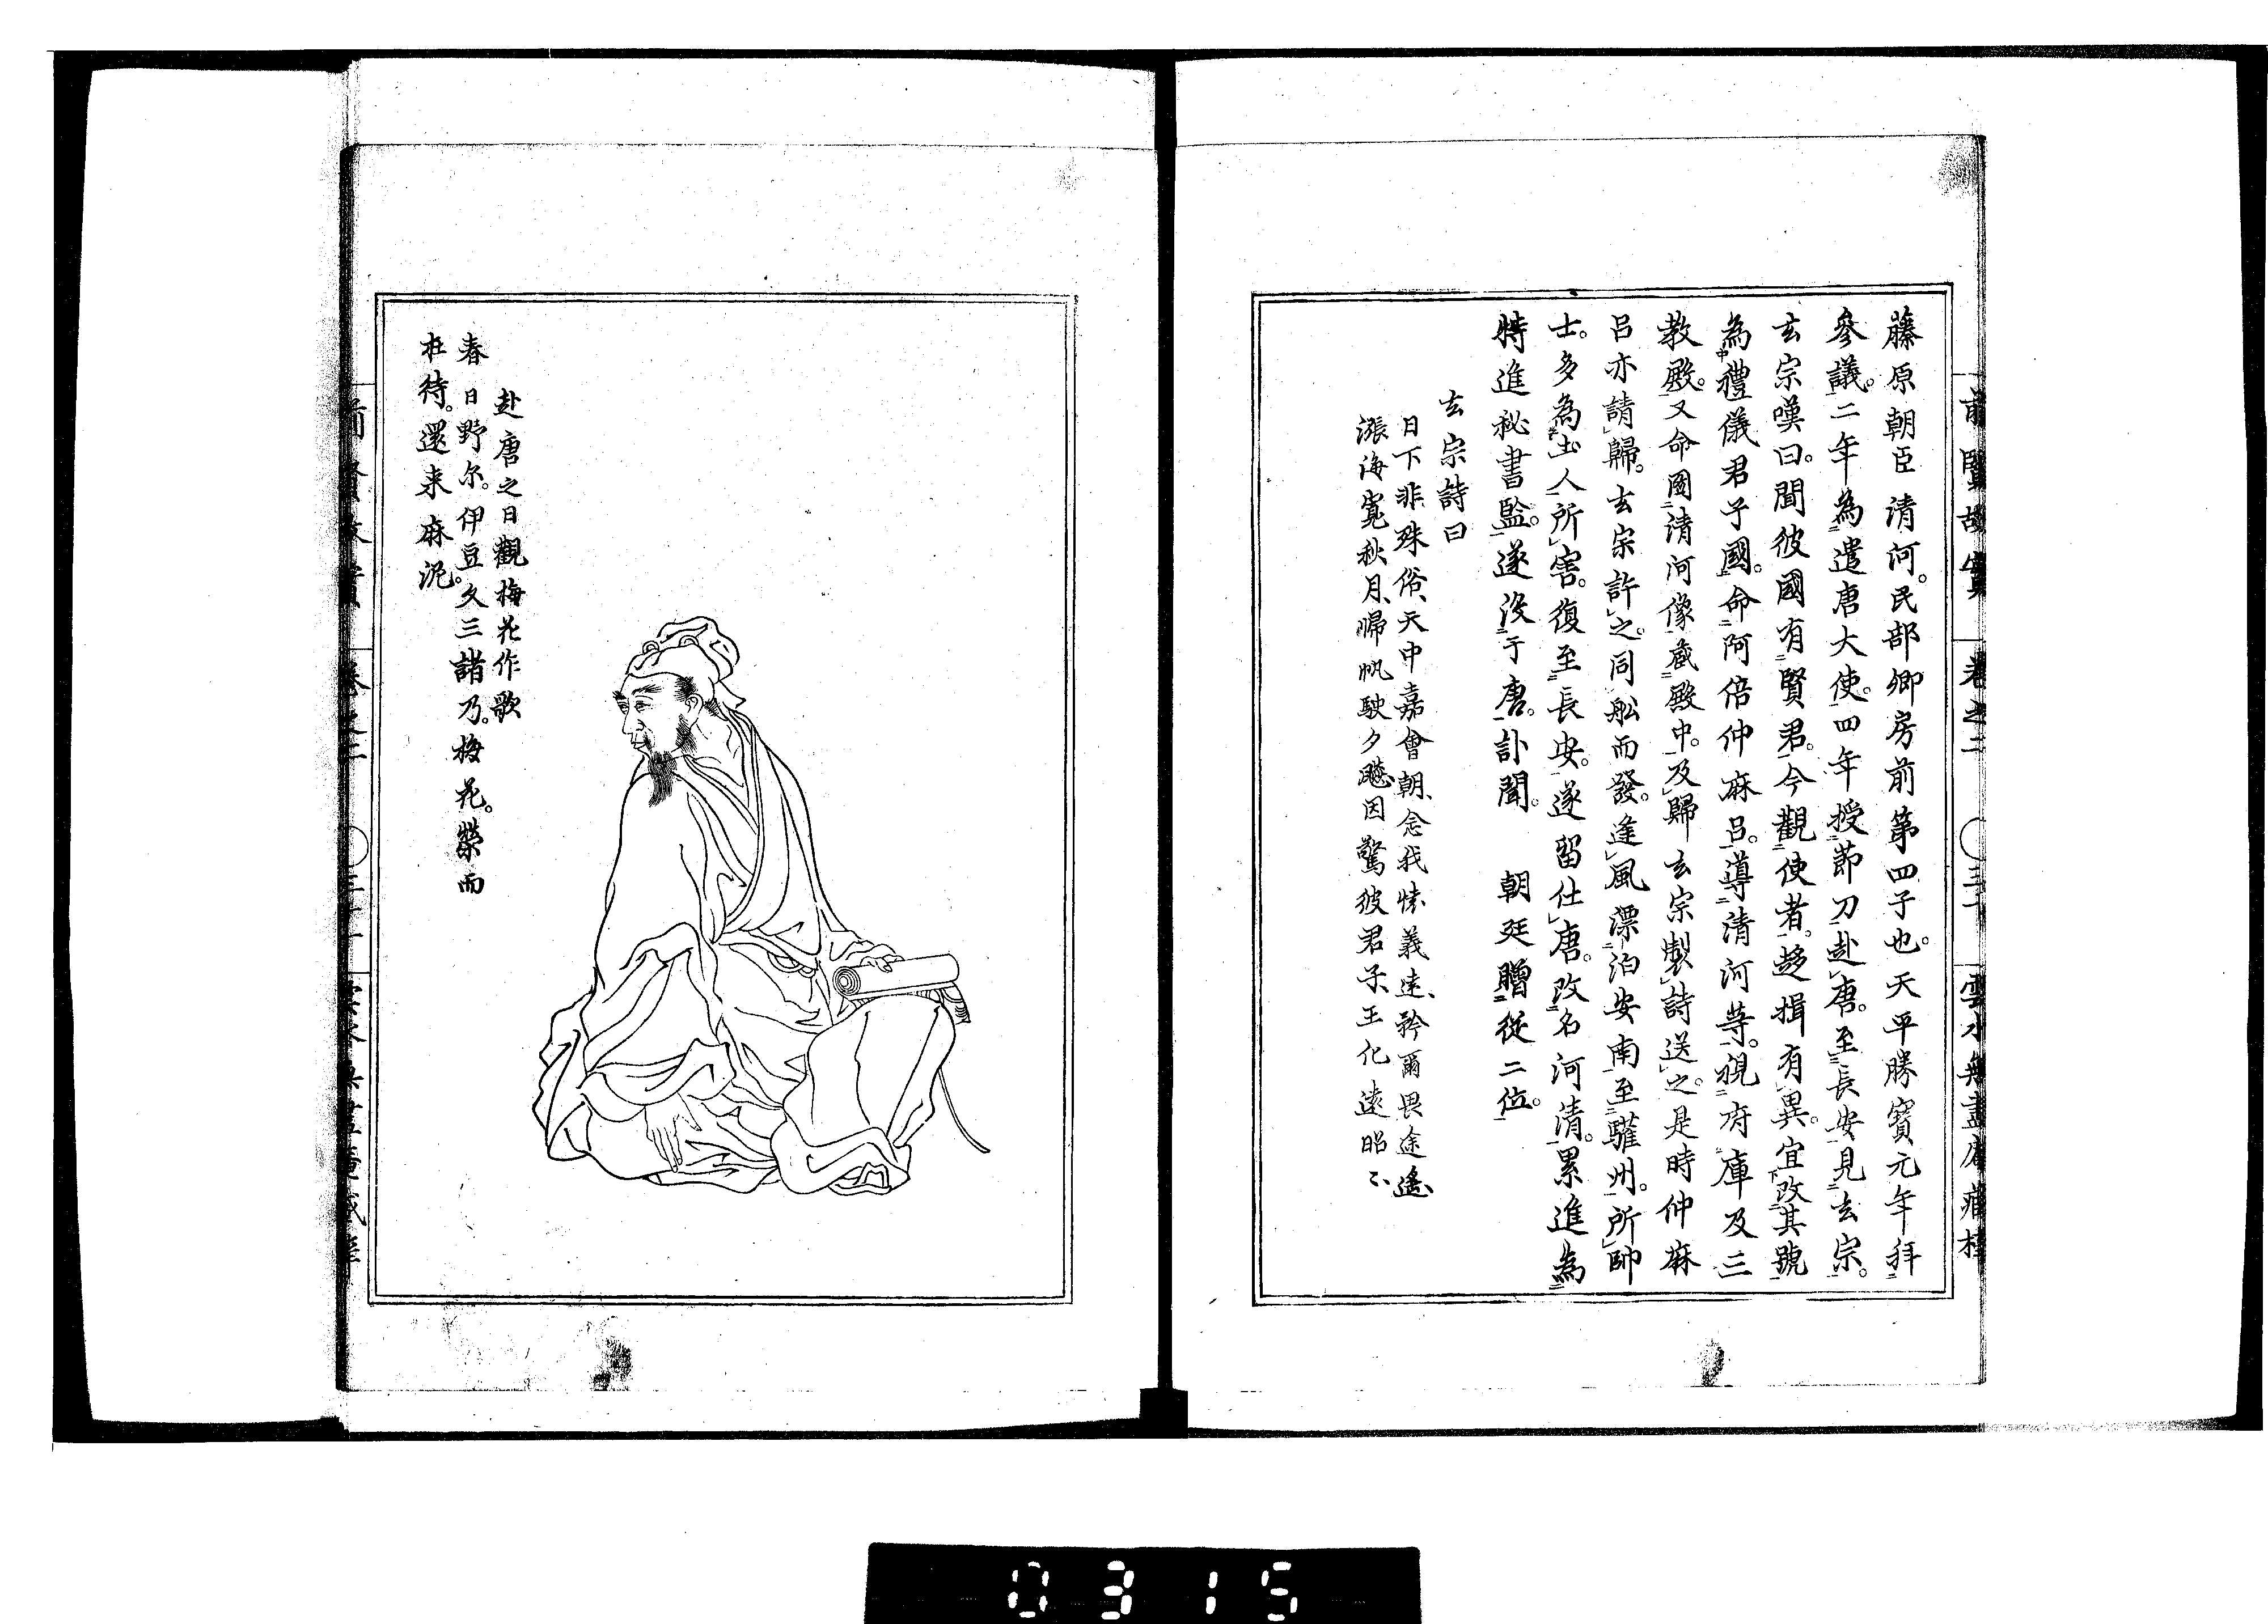 前賢故實 卷之二 〇三十 雲水無盡庵藏
藤原朝臣清河。民部卿房前第四子也。天平勝寶元年拜
參議。二年為遣唐大使。四年授節刀赴唐。至長安見玄宗。
玄宗嘆曰。聞彼國有賢君。今觀使者。趍揖有異。宜改其號
為禮儀君子國。命阿倍仲麻呂。導清河等。視府庫及三
教殿。又命圖清河像藏殿中。及歸玄宗製詩送之。是時仲麻
呂亦請歸。玄宗許之。同舩而發。逢風漂泊安南至驩州。所帥
士。多為土人所害。復至長安。遂留仕唐。改名河清。累進為
特進秘書監。遂沒于唐。訃聞。 朝廷贈從二位。
玄宗詩曰
日下非殊俗、天中嘉會朝、念我懐義遠、矜爾畏途遙、
漲海寛秋月、帰帆駛夕飈、因驚彼君子、王化遠昭〻、
赴唐之日觀梅花作歌
春日野尔。伊豆久三諸乃。梅花。榮而
在待。還来麻泥。